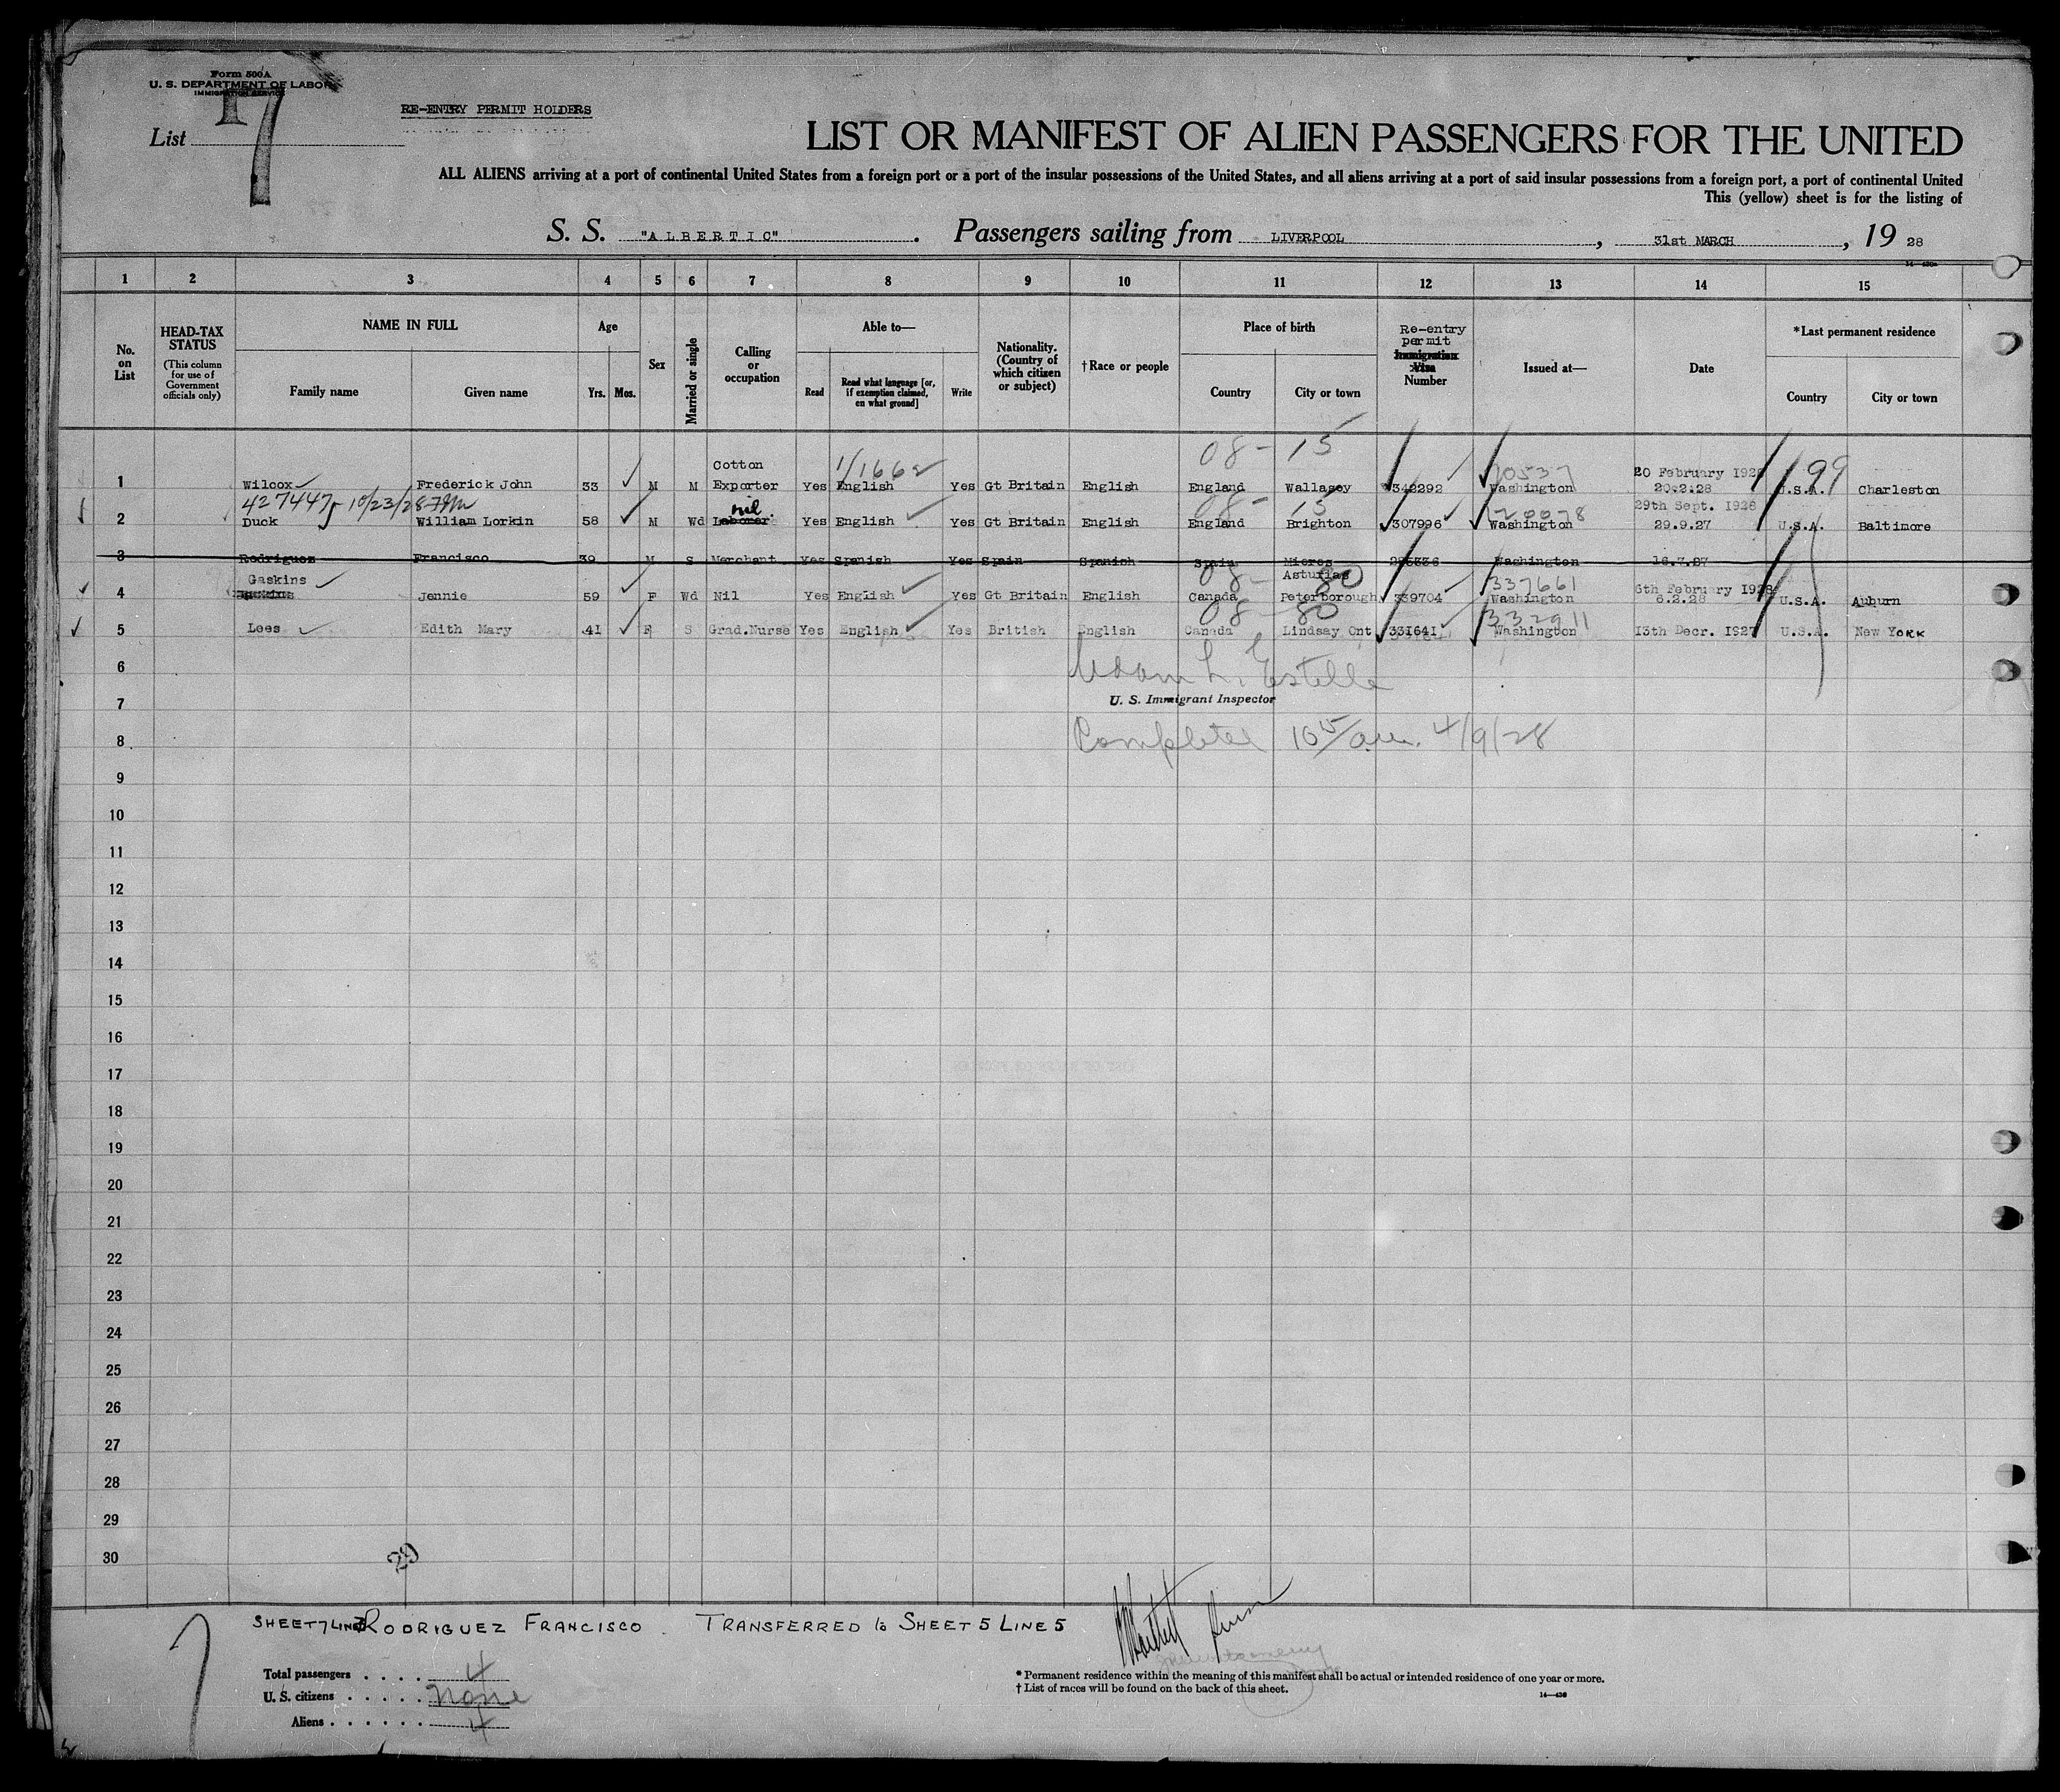 Form 500A
U. S. DEPARTMENT OF LABOR
IMMIGRATION SERVICE
List 7
RE-ENTRY PERMIT HOLDERS
LIST OR MANIFEST OF ALIEN PASSENGERS FOR THE UNITED
ALL ALIENS arriving at a port of continental United States from a foreign port or a port of the insular possessions of the United States, and all aliens arriving at a port of said insular possessions from a foreign port, a port of continental United
This (yellow) sheet is for the listing of
S. S. "ALBERTIC" . Passengers sailing from LIVERPOOL , 31st MARCH , 19 28
1 2 3 4 5 6 7 8 9 10 11 12 13 14 15
No. on List
HEAD-TAX STATUS
(This column for use of Government officials only)
NAME IN FULL
Family name Given name
Age
Yrs. Mos.
Sex
Married or single
Calling or occupation
Able to—
Read Read what language [or, if exemption claimed, on what ground] Write
Nationality. (Country of which citizen or subject)
†Race or people
Place of birth
Country City or town
Re-entry permit
Immigration Visa
Number
Issued at—
Date
*Last permanent residence
Country City or town
08 - 15
Cotton 1/1662 70537 20 February 1928 199
1 Wilcox Frederick John 33 M M Exporter Yes English Yes Gt Britain English England Wallasey 342292 Washington 20.2.28 U.S.A. Charleston
427447 10/23/28 nil 08 - 15 29th Sept. 1928
2 Duck William Lorkin 58 M Wd Laborer Yes English Yes Gt Britain English England Brighton 307996 Washington 29.9.27 U.S.A. Baltimore
3 Rodriguez Francisco 39 M S Merchant Yes Spanish Yes Spain Spanish Spain Mieres Washington 16.7.27
Asturias
Gaskins 08 - 80 337661 6th February 1928
4 Jennie 59 F Wd Nil Yes English Yes Gt Britain English Canada Peterborough 339704 Washington 6.2.28 U.S.A. Auburn
08 - 80 332911
5 Lees Edith Mary 41 F S Grad.Nurse Yes English Yes British English Canada Lindsay Ont 331641 Washington 13th Decr. 1927 U.S.A. New York
6
Adam L. Estelle
7 U. S. Immigrant Inspector
8 Completed 10 15/a.m. 4/9/28
9
10
11
12
13
14
15
16
17
18
19
20
21
22
23
24
25
26
27
28
29
30
29
SHEET 7 LINE 3 RODRIGUEZ FRANCISCO TRANSFERRED to SHEET 5 LINE 5
7
Total passengers . . . . 4
U. S. citizens . . . . . none
Aliens . . . . . . 4
* Permanent residence within the meaning of this manifest shall be actual or intended residence of one year or more.
† List of races will be found on the back of this sheet.